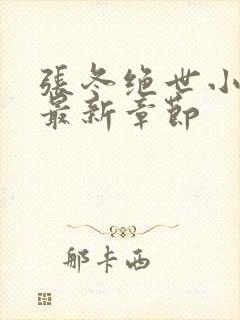 張冬绝世小
最新章節
那卡西